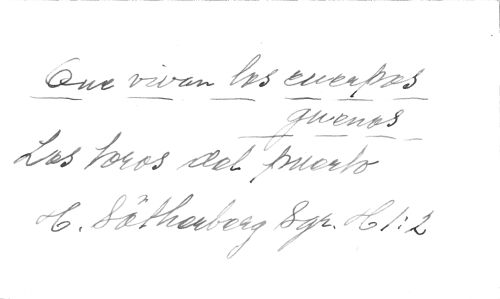 Que vivan los cuerpos
guenos
Los toros del puerto
H. Sötherberg Sgr. H 1:2